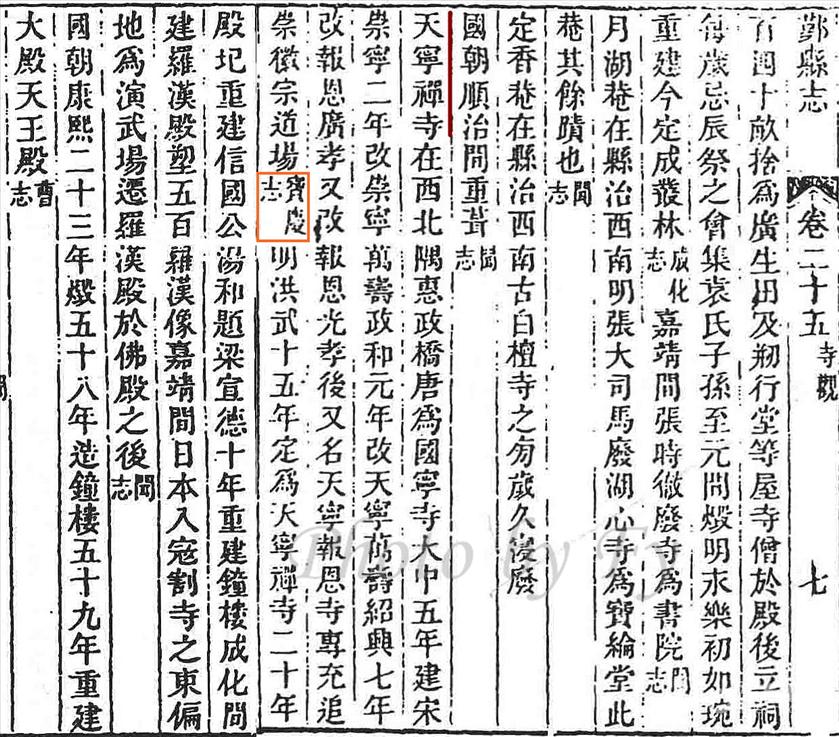 鄞縣志 卷二十五 寺觀 七
百四十畝捨為廣生田及剏行堂等屋寺僧於殿後立祠
每歲忌辰祭之會集袁氏子孫至元間燬明永樂初如琬
重建今定成叢林成化志嘉靖間張時徹廢寺為書院聞志
月湖菴在縣治西南明張大司馬廢湖心寺為寶綸堂此
菴其餘蹟也聞志
定香菴在縣治西南古白檀寺之旁歲久寖廢
國朝順治間重葺聞志
天寧禪寺在西北隅惠政橋唐為國寧寺大中五年建宋
崇寧二年改崇寧萬壽政和元年改天寧萬壽紹興七年
改報恩廣孝又改報恩光孝後又名天寧報恩寺專充追
崇徽宗道場寶慶志明洪武十五年定為天寧禪寺二十年
殿圮重建信國公湯和題梁宣德十年重建鐘樓成化間
建羅漢殿塑五百羅漢像嘉靖間日本入寇割寺之東偏
地為演武場遷羅漢殿於佛殿之後聞志
國朝康熙二十三年燬五十八年造鐘樓五十九年重建
大殿天王殿曹志
Photo by Ty